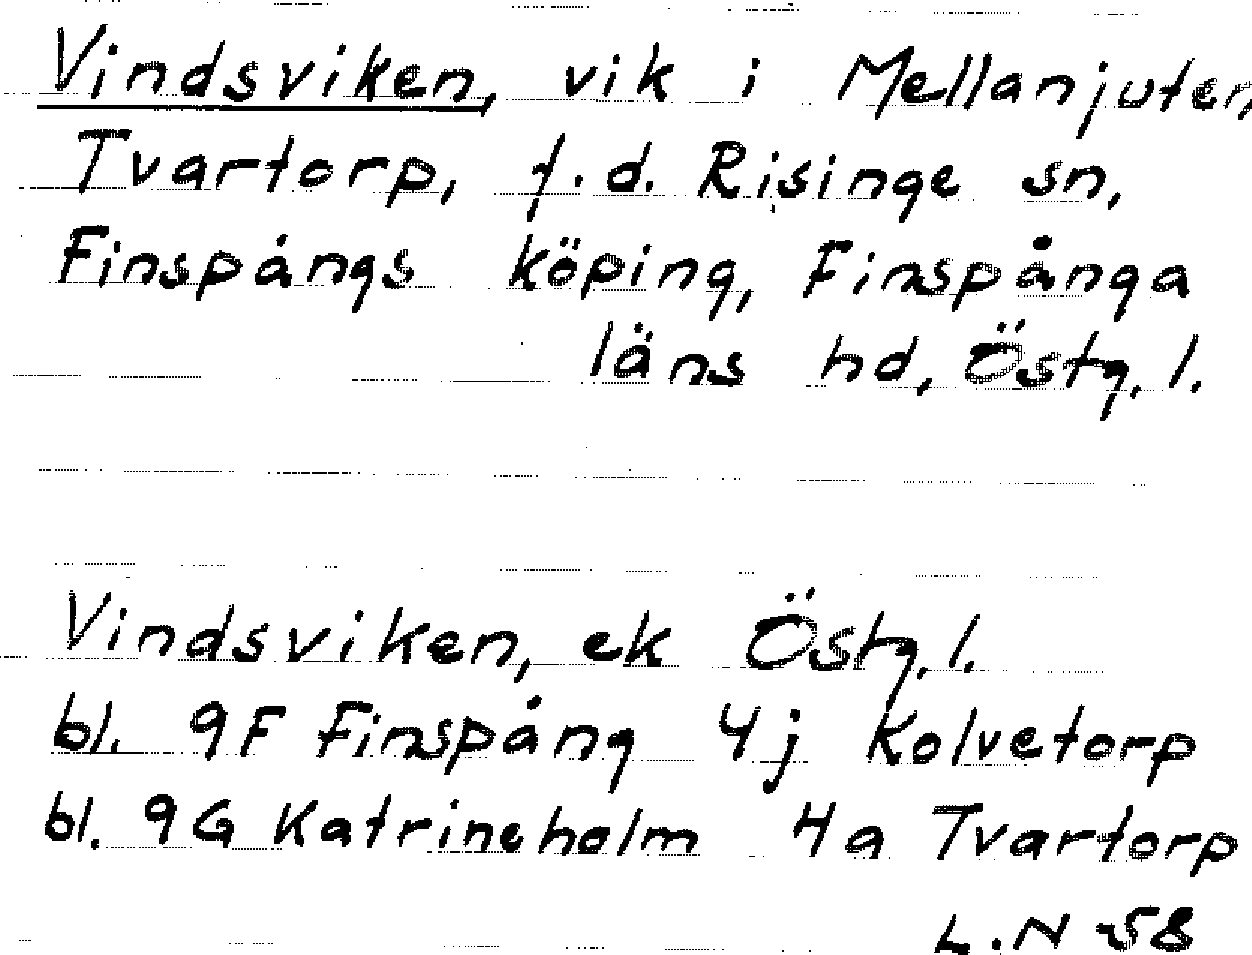 Vindsviken, vik i Mellanjuten,
Tvartorp, f.d. Risinge sn,
Finspångs köping, Finspånga
läns hd, Östg. l.
Vindsviken, ek Östg. l.
bl. 9F Finspång 4j Kolvetorp
bl. 9G Katrineholm 4a Tvartorp
L.N 58